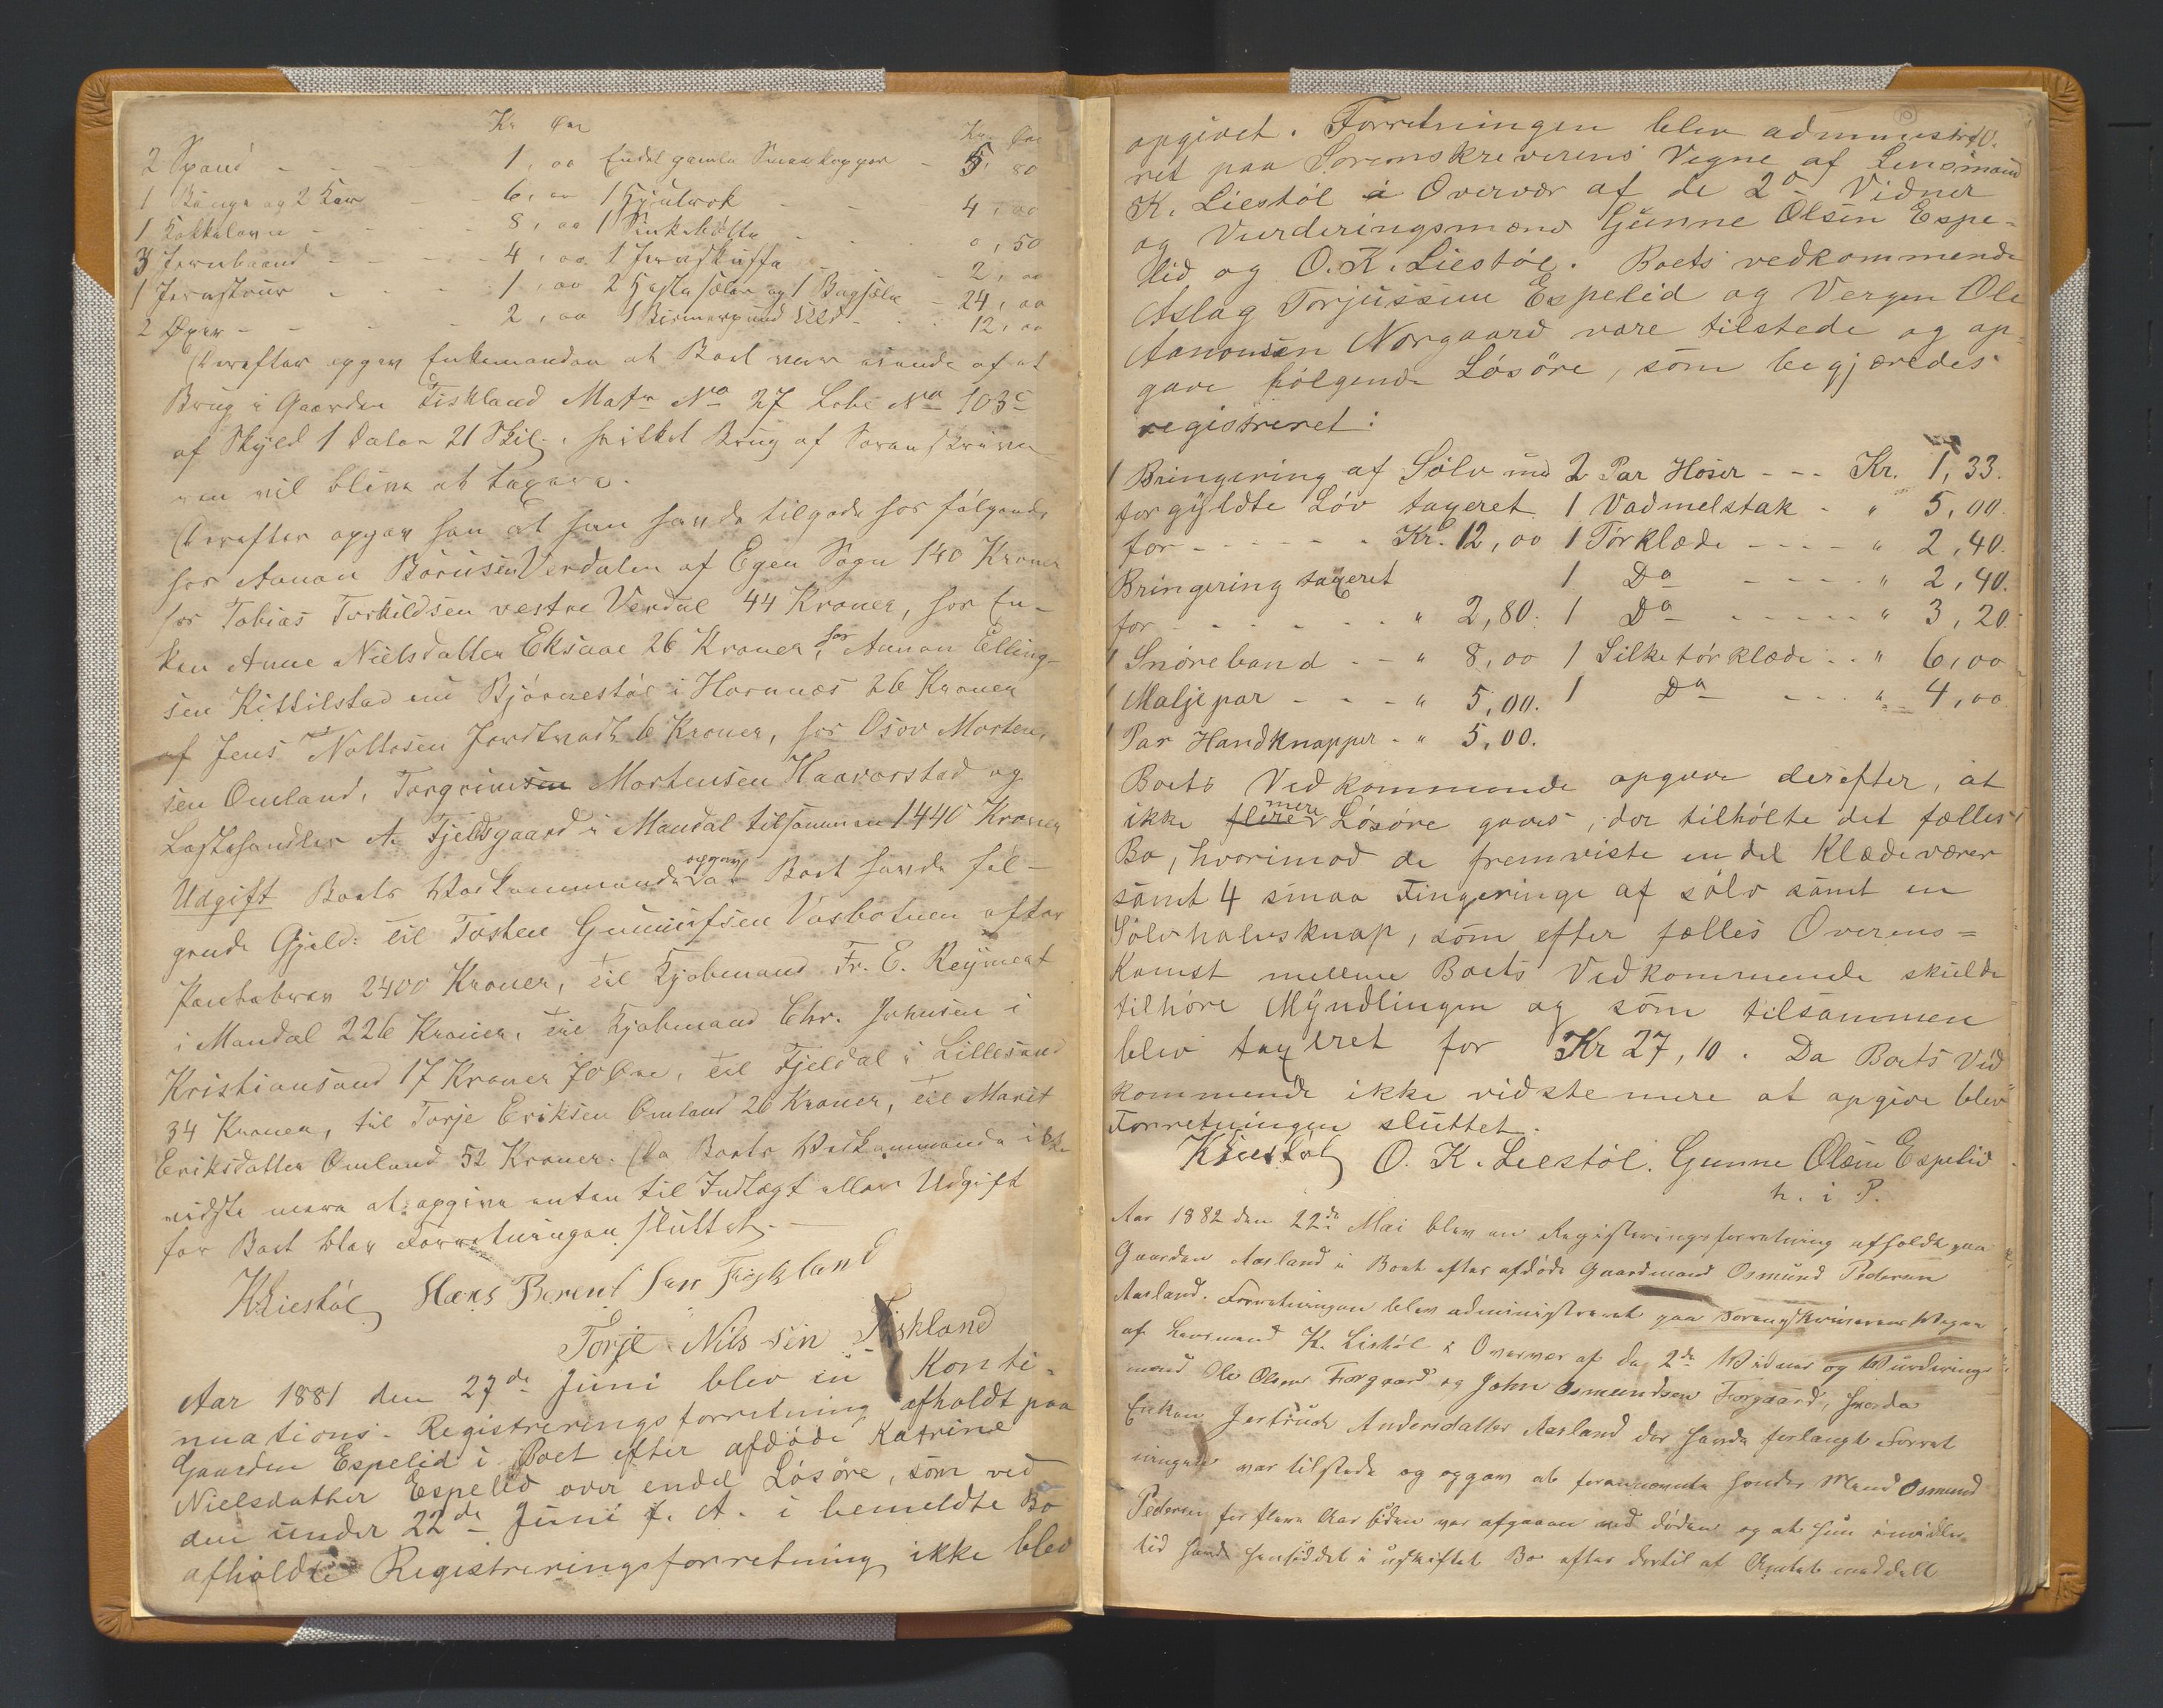 Kr Øre Kr. Øre
2 Spand - - 1, 00 Endel gamle Smaakopper - 5, 80
1 Bunge og 2 Kar - 6, 00 1 Hjulrok - - 4, 00
1 Kakkelovn - - - 8, 00 1 - - 0, 50
3 Jernbaand - - - 4, 00 1 Jernskuffe - - 2, 00
1 Jernstour - - - 1, 00 2 Hestesæler og 1 Bugsæle - 24, 00
2 Øxer - - - 2, 00 1 Bismerpund Uld - - 12, 00
Derefter opgav Enkemanden at Boet var eiende af et
Brug i Gaarden Fiskland Matr No 27 Løbe No 103c
af Skyld 1 Daler 21 Skil., hvilket Brug af Sorenskrive
ren vil blive at taxere.
Derefter opgav han at han havde tilgode hos følgende
hos Aanon Børusen Verdalen af Egen Sogn 140 Kroner
hos Tobias Torkildsen vestre Verdal 44 Kroner, hos En-
ken Anne Nielsdatter Eksaae 26 Kroner, hos Aanon Elling-
sen Kittilstad nu Bjørnestøl i Hornnæs 26 Kroner
af Jens Noltosen 6 Kroner, hos Osov Morten-
sen Omland, Torgrimsen Mortensen Haaverstad og
Lasthandler A. Fjeldsgaard i Mandal tilsammen 1440 Kroner
Udgift Boets Vedkommende opgav at Boet havde føl-
gende Gjeld: til Tosten Gunnufsen Vasbotnen efter
Pantebrev 2400 Kroner, til Kjøbmand Fr. E. Reymert
i Mandal 226 Kroner, til Kjøbmand Chr. Johnsen i
Kristiansand 17 Kroner 70 Øre, til Fjeldal i Lillesand
34 Kroner, til Torje Eriksen Omland 26 Kroner, til Marit
Eriksdatter Omland 52 Kroner. Da Boets Vedkommende ikke
vidste mere at opgive enten til Indtægt eller Udgift
for Boet blev Forretningen sluttet. -
K Liestøl Hans Berent sen Fiskland
Torje Nils sen Fiskland
Aar 1881 den 27de Juni blev en Konti-
nuations- Registreringsforretning afholdt paa
Gaarden Espelid i Boet efter afdøde Katrine
Nielsdatter Espelid over endel Løsøre, som ved
den under 22de Juni f. A. i bemeldte Bo
afholdte Registreringsforretning ikke blev
10.
opgivet. Forretningen blev administre
ret paa Sorenskreverens Vegne af Lensmand
K. Liestøl i Overvær af de 2de Vidner
og Vurderingsmænd Gunne Olsen Espe=
lid og O. K. Liestøl. Boets vedkommende
Aslag Torjussen Espelid og Vergen Ole
Aanonsen Norgaard vare tilstede og op
gave følgende Løsøre, som begjæredes
registreret:
1 Bringering af Sølv med 2 Par Hoser - - - Kr. 1, 33.
forgyldte Løv taxeret 1 Vadmelstak - " 5, 00.
for - - - - - - Kr. 12, 00 1 Tørklæde - - - - " 2, 40.
Bringering taxeret 1 Do - - - - - " 2, 40.
for - - - - - - " 2, 80. 1 Do - - - - - " 3, 20.
1 Snøreband - - " 8, 00 1 Silketørklæde - - " 6, 00
1 Maljepar - - - " 5, 00. 1 Do - - - " 4, 00.
1 Par Handknapper - " 5, 00.
Boets Vedkommende opgave derefter, at
ikke flere mere Løsøre gaves, der tilhølte det fælles
Bo, hvorimod de fremviste en del Klædevarer
samt 4 smaa Fingeringe af sølv samt en
Sølvhalvsknap, som efter fælles Overens=
komst mellem Boets Vedkommende skulde
tilhøre Myndlingen og som tilsammen
blev taxeret for Kr 27, 10. Da Boets Ved
kommende ikke vidste mere at opgive blev
Forretningen sluttet.
K Liestøl O. K. Liestøl. Gunne Olsen Espelid
h. i P.
Aar 1882 den 22de Mai blev en Registreringsforretning afholdt paa
Gaarden Aasland i Boet efter afdøde Gaardmand Osmund Pedersen
Aasland. Forretningen blev administreret paa Sorenskriverens Vegne
af Lensmand K. Liestøl i Overvær af de 2de Vidner og Vurderings
mænd Ole Olsen Forgaard og John Osmundsen Forgaard, hvorda
Enken Jertrud Andersdatter Aasland der havde forlangt Forret
ningen var tilstede og opgav at forannævnte hendes Mand Osmund
Pedersen for flere Aar siden var afgaaen ved døden og at hun imidler
tid havde hensiddet i uskiftet Bo efter dertil af Amtet meddelt